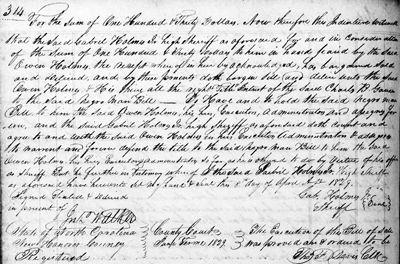 314
For the sum of One Hundred & thirty Dollars. Now therefore the Indenture witnesseth
that the said Gabriel Holmes high sheriff as aforesaid, by and in consideration
of the sum of One Hundred & thirty Dollars to him in hand paid by the said
Owen Holmes, the receipt whereof is hereby acknowledged, has bargained sold
and released, and by these presents doth bargain sell and deliver unto the said
Owen Holmes & His heirs all the right title interest of the said Charles D.
to the said Negro man Bill — To have and to hold the said Negro man
Bill to him the said Owen Holmes, his heirs, Executors, Administrators and assigns for
ever, and the said Gabriel Holmes high sheriff as aforesaid doth
agree to and with the said Owen Holmes his heirs Executors Administrators & assigns
to warrant and forever defend the title to the said Negro man Bill to him the said
Owen Holmes his heirs Executors Administrators so far as his office by virtue of his office
as Sheriff But no further in testimony whereof the said Gabriel Holmes High Sheriff
as aforesaid have hereunto set my hand & seal this 8th day of April A.D. 1829.
Signed Sealed & delivered
in presence of
Gab. Holmes
Sheriff
Seal
State of North Carolina
New Hanover County
County Court
Term 1829
The Execution of the Bill of Sale
was proved and ordered to be
Registered